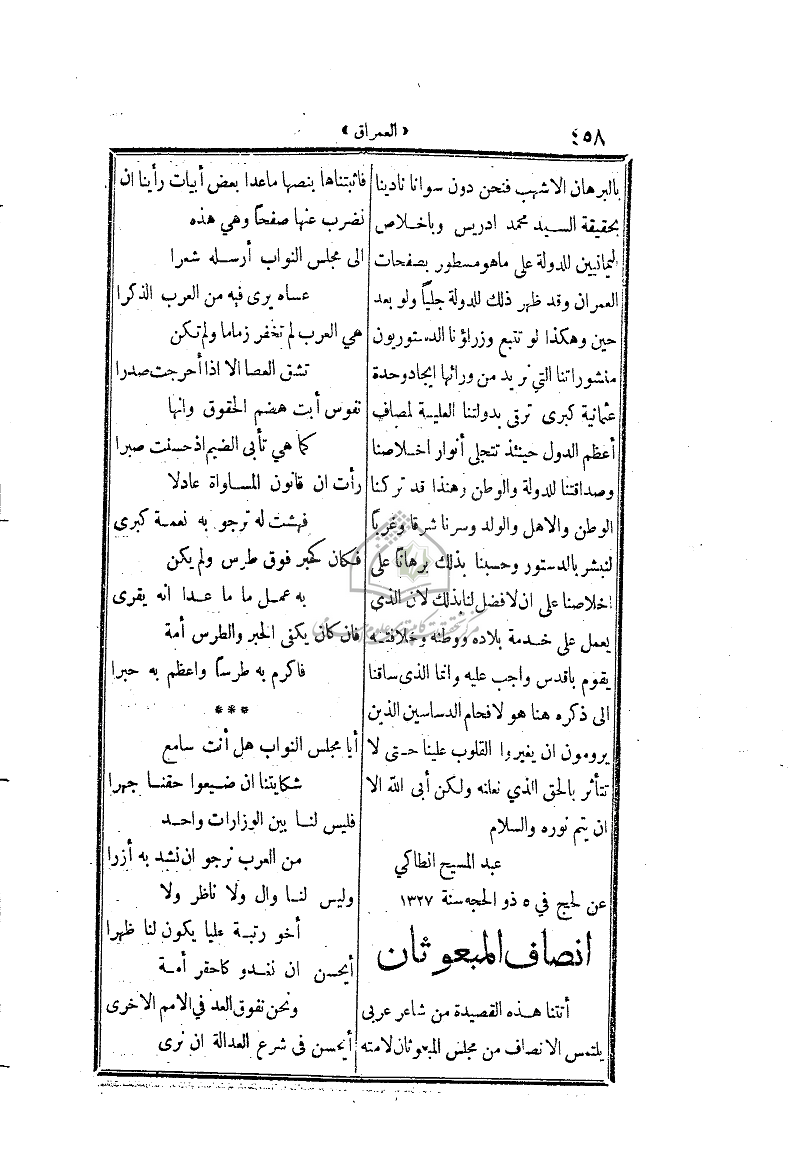 ٤٥٨
« العمران »
بالبرهان الاشهب فنحن دون سوانا نادينا
بحقيقة السيد محمد ادريس وباخلاص
اليمانيين للدولة على ماهو مسطور بصفحات
العمران وقد ظهر ذلك للدولة جلياً ولو بعد
حين وهكذا لو تتبع وزراؤنا الدستوريون
منشوراتنا التي نريد من ورائها ايجاد وحدة
عثمانية كبرى ترقى بدولتنا العلية لمصاف
أعظم الدول حينئذ تتجلى أنوار اخلاصنا
وصداقتنا للدولة والوطن وهنذا قد تركنا
الوطن والاهل والولد وسرنا شرقا وغرباً
لنبشر بالدستور وحسبنا بذلك برهاناً على
اخلاصنا على ان لافضل لنابذلك لان الذي
يعمل على خدمة بلاده ووطنه وخلافته
يقوم باقدس واجب عليه وانما الذى ساقنا
الى ذكره هنا هو لافحام الدساسين الذين
يرومون ان يغيروا القلوب علينا حتى لا
تتأثر بالحق الذي نعلنه ولكن أبى الله الا
ان يتم نوره والسلام
عبد المسيح انطاكي
عن لحج في ٥ ذو الحجه سنة ١٣٢٧
انصاف المبعوثان
أتتنا هذه القصيدة من شاعر عربى
يلتمس الانصاف من مجلس المبعوثان لامته
فاثبتناها بنصها ماعدا بعض أبيات رأينا ان
نضرب عنها صفحاً وهي هذه
الى مجلس النواب أرسله شعرا
عساه يرى فيه من العرب الذكرا
هي العرب لم تخفر زماما ولم تكن
تشق العصا الا اذا أحرجت صدرا
نفوس أبت هضم الحقوق وانها
كما هي تأبى الضيم اذ حسنت صبرا
رأت ان قانون المساواة عادلا
فهشت له ترجو به نعمة كبرى
فكان كحبر فوق طرس ولم يكن
به عمل ما ما عدا انه يقرى
فان كان يكفى الحبر والطرس أمة
فاكرم به طرساً واعظم به حبرا
***
أيا مجلس النواب هل أنت سامع
شكايتنا ان ضيعوا حقنا جهرا
فليس لنا بين الوزارات واحد
من العرب نرجو ان نشد به أزرا
وليس لنا وال ولا ناظر ولا
أخو رتبة عليا يكون لنا ظهرا
أيحسن ان نغدو كاحقر أمة
ونحن نفوق العد في الامم الاخرى
أيحسن فى شرع العدالة ان نرى